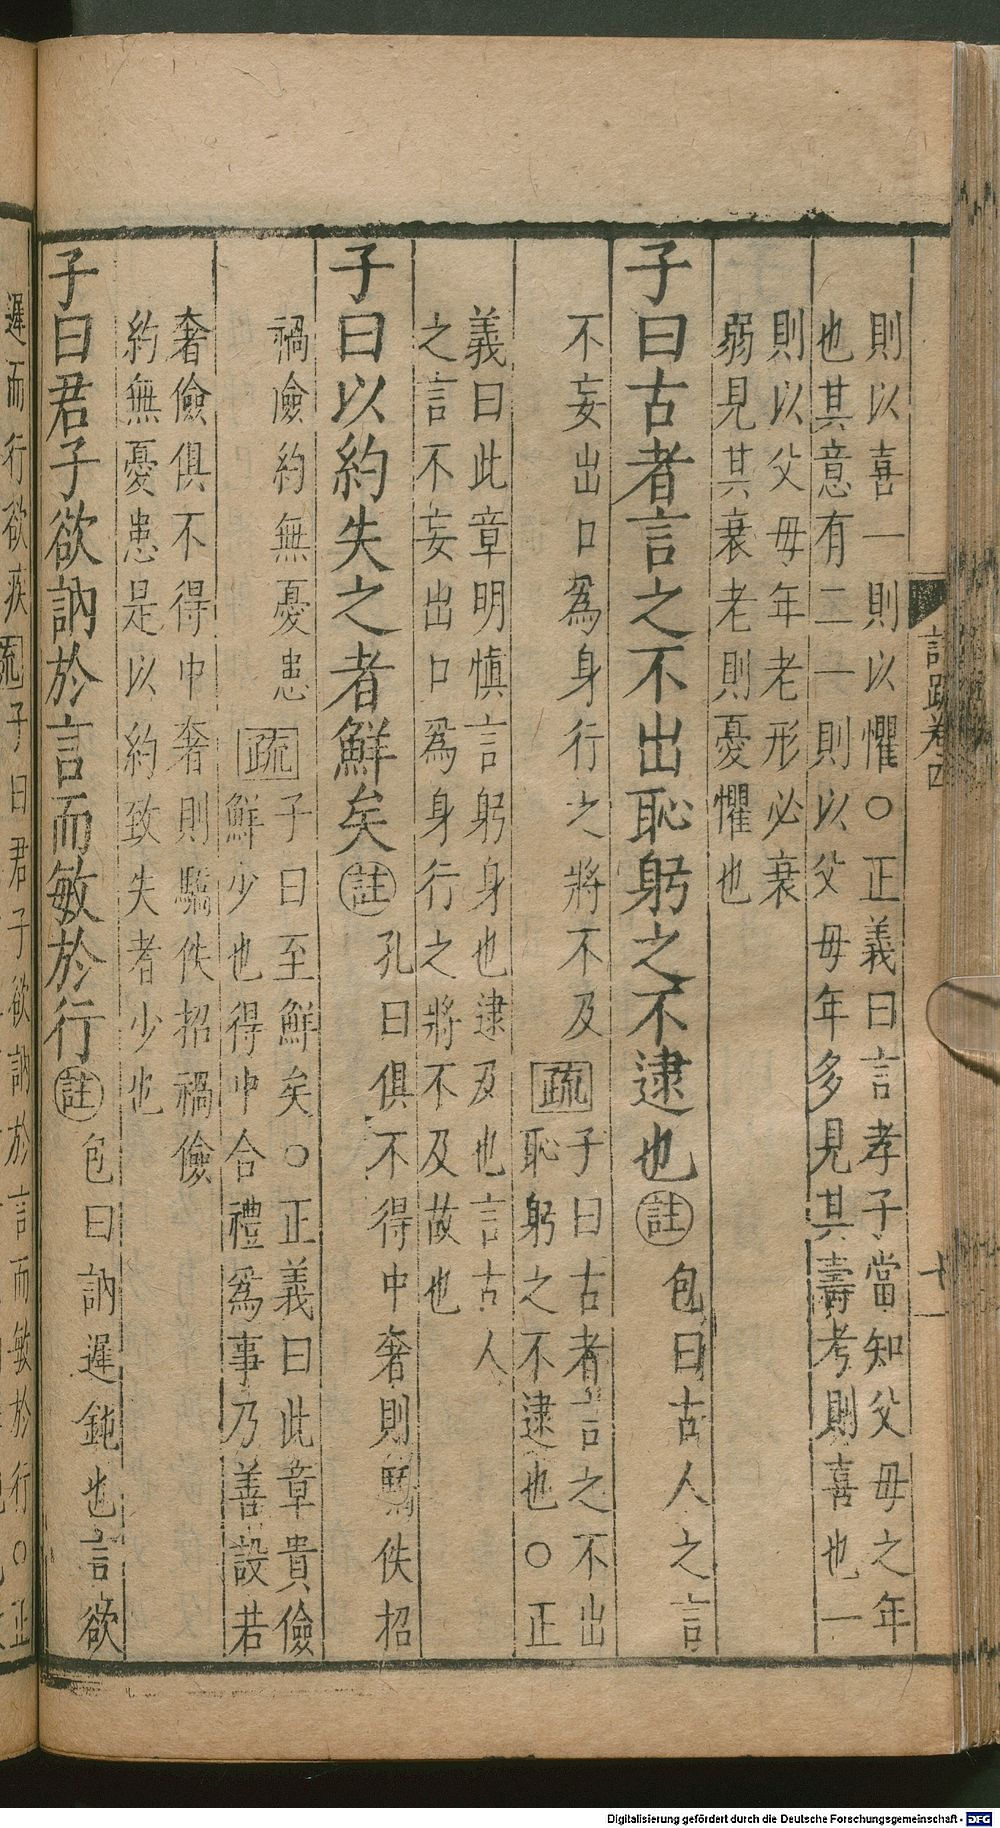 則以喜一則以懼○正義曰言孝子當知父母之年
也其意有二一則以父母年多見其壽考則喜也一
則以父母年老形必衰
弱見其衰老則憂懼也
子曰古者言之不出恥躬之不逮也註包曰古人之言
不妄出口爲身行之將不及疏子曰古者言之不出
恥躬之不逮也○正
義曰此章明慎言躬身也逮及也言古人
之言不妄出口爲身行之將不及故也
子曰以約失之者鮮矣註孔曰俱不得中奢則驕佚招
禍儉約無憂患疏子曰至鮮矣○正義曰此章貴儉
鮮少也得中合禮爲事乃善設若
奢儉俱不得中奢則驕佚招禍儉
約無憂患是以約致失者少也
子曰君子欲訥於言而敏於行註包曰訥遲鈍也言欲
遲而行欲疾疏子曰君子欲訥於言而敏於行○正
註疏卷四
十一
Digitalisierung gefördert durch die Deutsche Forschungsgemeinschaft - DFG